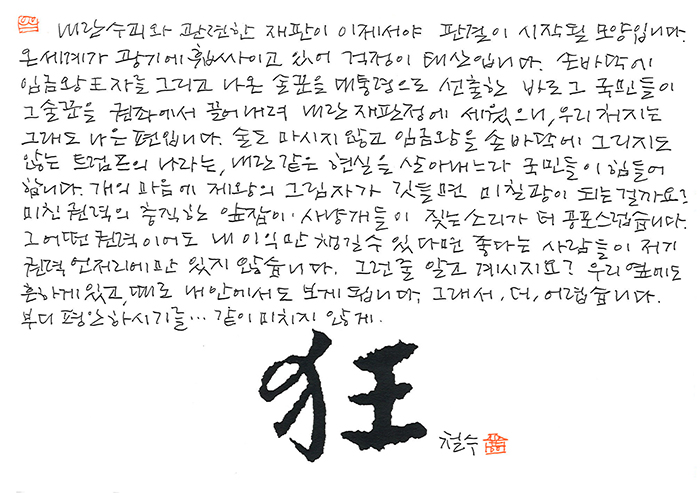 내란수괴와 관련한 재판이 이제서야 판결이 시작될 모양입니다.
온세계가 광기에 휩싸이고 있어 걱정이 태산입니다. 손바닥에
임금왕王자를 그리고 나온 술꾼을 대통령으로 선출한 바로 그 국민들이
그 술꾼을 권좌에서 끌어내려 내란재판정에 세웠으니, 우리 처지는
그래도 나은 편입니다. 술도 마시지 않고 임금왕을 손바닥에 그리지도
않는 트럼프의 나라는, 내란같은 현실을 살아내느라 국민들이 힘들어
합니다. 개의 마음에 제왕의 그림자가 깃들면 미칠광이 되는걸까요?
미친 권력의 충직한 앞잡이·사냥개들이 짖는소리가 더 공포스럽습니다.
그 어떤 권력이어도 내 이익만 챙길수 있다면 좋다는 사람들이 저기
권력 언저리에만 있지 않습니다. 그런줄 알고 계시지요? 우리 옆에도
흔하게 있고, 때로 내안에서도 보게 됩니다. 그래서, 더, 어렵습니다.
부디 평안하시기를… 같이 미치지 않게.
狂
철수